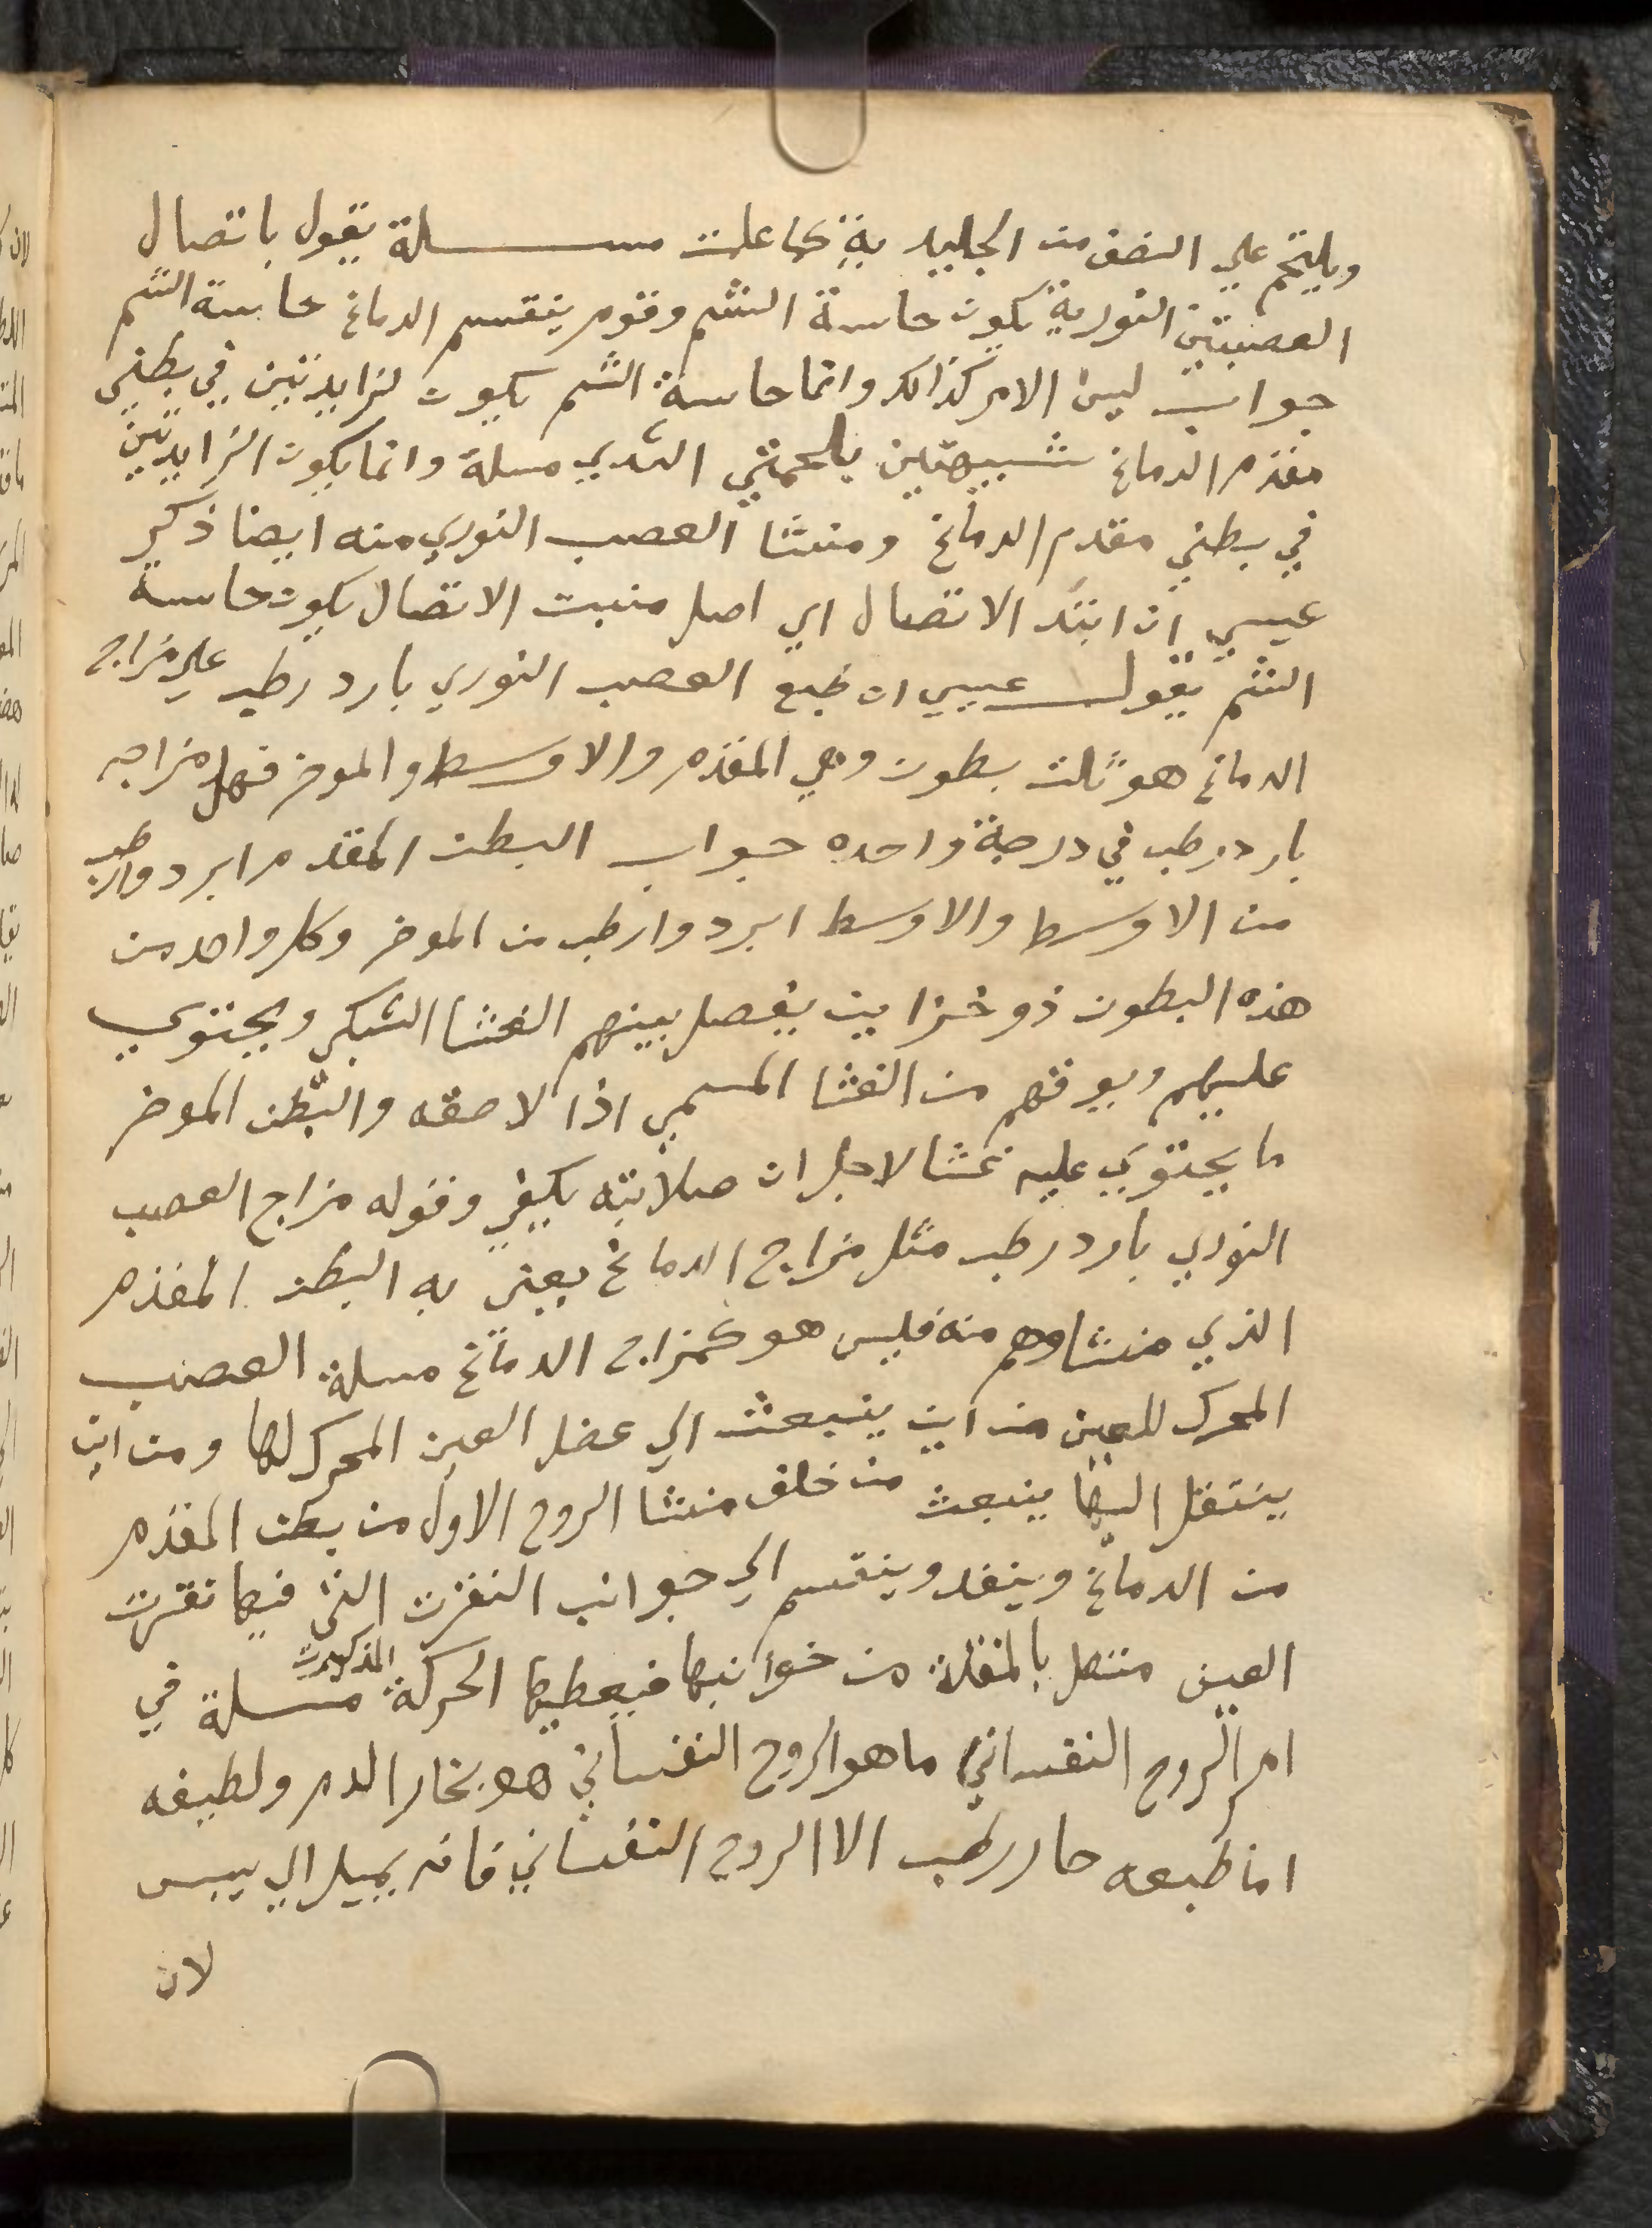 ويلتحم علي النصف من الجليديه كما علمت مسلة يقول باتصال
العصبتين النورية يكون حاسة الشم وقوم ينقسم الدماغ حاسة الشم
جواب ليس الامر كذالك وانما حاسة الشم يكون لزايدتين في بطني
مقدم الدماغ شبيهتين بلحمتي الثدي مسلة وانما يكون الزايدتين
في بطني مقدم الدماغ ومنشا العصب النوري منه ايضا ذكر
عيسي ان ابتد الاتصال اي اصل منبت الاتصال يكون حاسة
الشم يقول عيسي ان طبع العصب النوري بارد رطب علي مزاج
الدماغ هو ثلث بطون وهي المقدم والاوسط والموخر فهل مزاجه
بارد رطب في درجة واحده جواب البطن المقدم ابرد وارطب
من الاوسط والاوسط ابرد وارطب من الموخر وكل واحد من
هذه البطون ذو خزاين يفصل بينهم الغشا الشبكي ويحتوي
عليهم ويوقهم من الغشا المسمي اذا لاصقه والبطن الموخر
ما يحتوي عليه غشا لاجل ان صلابته يكفي وقوله مزاج العصب
النوري بارد رطب مثل مزاج الدماغ يعني به البطن المقدم
الذي منشاوهم منه فليس هو كمزاج الدماغ مسلة العصب
المحرك للعين من اين ينبعث الي عضل العين المحرك لها ومن اين
ينتقل اليها ينبعث من خلف منشا الزوج الاول من بطن المقدم
من الدماغ وينفد وينقسم الي جوانب النقرت التي فيها نقرت
العين متصل بالمقلة من جوانبها فيعطيها الحركة المذكورت مسلة في
امر الروح النفساني ما هو الروح النفساني هو بخار الدم ولطيفه
اما طبعه حار رطب الا الروح النفساني فانه يميل الي يبس
لان